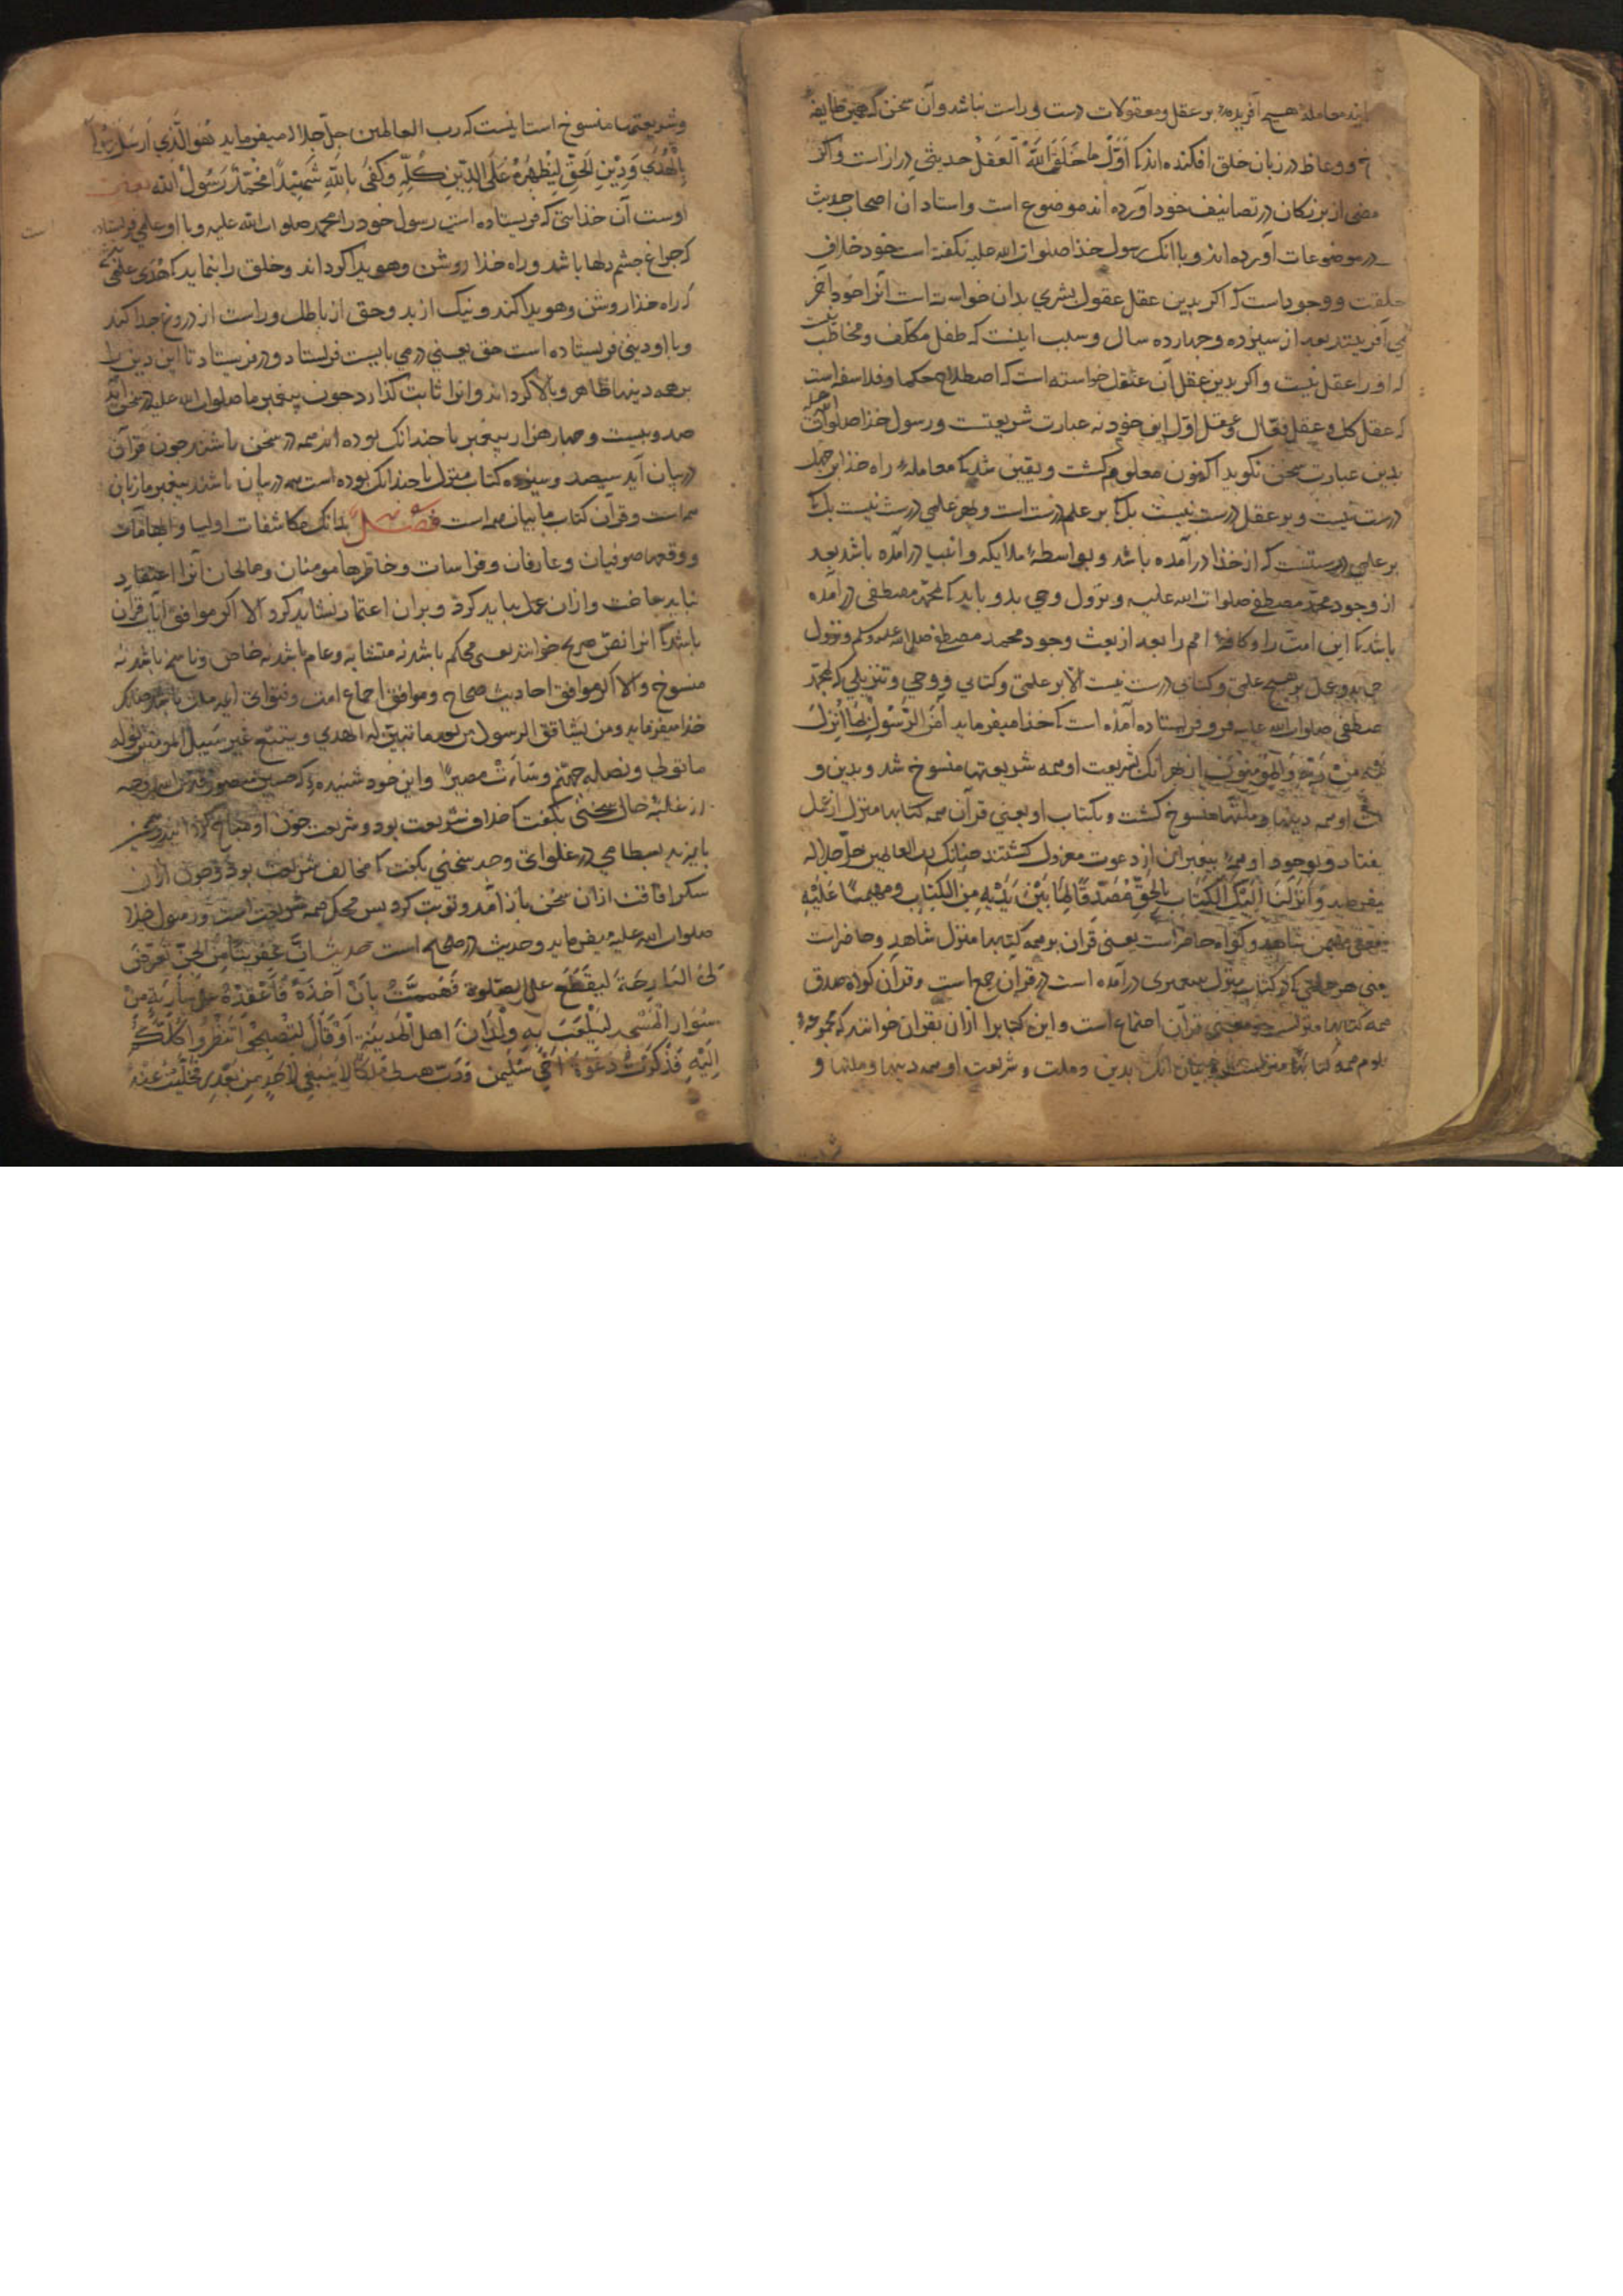 اند معامله هیچ آفریده بر عقل و معقولات درست و راست نباشد و آن سخن که همین طایفه
و وعاظ در زبان خلق افکنده اند کی اَوَّلُ ما خَلَقَ اللهُ الْعَقْلُ حدیثی دراز است و اگر
بعضی از بزرگان در تصانیف خود آورده اند موضوع است و استادان اصحاب حدیث
در موضوعات آورده اند و با آنک رسول خذا صلوات الله علیه نگفته است خود خلاف
خلقت و وجود است که اکر بدین عقل عقول بشری بدان خواسته است آنرا خود آخر
می آفرینند بعد از سیزده و چهارده سال و سبب اینست که طفل مکلّف و مخاطب نیست
که او را عقل نیست و اکر بدین عقل آن عقل خواسته است که اصطلاح حکما و فلاسفه است
که عقل کل و عقل فعّال و عقل اوّل این خود نه عبارت شریعتست و رسول خذا صلوات الله علیه
بدین عبارت سخن نکوید اکنون معلوم کشت و یقین شد کی معامله راه خذا بر جهل
درست نیست و بر عقل درست نیست بلک بر علم درست است و بهر علمی درست نیست بلک
بر علمی درستست که از خذا درآمده باشد و بواسطه ملایکه و انبیا درآمده باشد بعد
از وجود محمّد مصطفی صلوات الله علیه و نزول وحی بدو باید کی بمحمّد مصطفی درآمده
باشد کی این امت را و کافه امم را بعد از بعث وجود محمد مصطفی صلی الله علیه وسلم و نزول
وحی بدو عمل بر هیچ علمی و کتابی درست نیست الّا بر علمی و کتابی و وحی و تنزیلی که بمحمّد
مصطفی صلوات الله علیه فرو فریستاده آمذه است کی خذا میفرماید آمَنَ الرَّسُولُ بِمَا اُنْزِلَ
اِلَیْهِ مِنْ رَبِّهِ وَالْمُؤْمِنُونَ از بهر آنک بشریعت او همه شریعتها منسوخ شد و بدین و
ملت او همه دینها و ملتها منسوخ کشت و بکتاب او یعنی قرآن همه کتابها منزل از عمل
بیفتاد و بوجود او همه پیغمبران از دعوت معزول کشتند چنانک رب العالمین جلّ جلاله
میفرماید وَ اَنْزَلْنَا اِلَیْکَ الْکِتَابَ بِالْحَقِّ مُصَدِّقًا لِمَا بَیْنَ یَدَیْهِ مِنَ الْکِتَابِ و مهیمنًا عَلَیْهِ
معنی مهیمن شاهد و کواه حاضر است یعنی قرآن بر همه کتابها منزل شاهد و حاضر است
یعنی هر چه در کتاب منزل پیغمبری درآمده است در قرآن جمع است و قرآن کواه صدق
همه کتابها منزلست و معنی قرآن اجتماع است و این کتابرا ازان بقرآن خوانند که مجموعه
علوم همه کتابها منزلست و بیان آنک بدین و ملت و شریعت او همه دینها و ملتها و
و شریعتها منسوخ است اینست که رب العالمین جلّ جلاله میفرماید هُوَ الَّذِي اَرْسَلَ رَسُولَهُ
بِالْهُدَی وَ دِیْنِ الْحَقِّ لِیُظْهِرَهُ عَلَی الدِّیْنِ کُلِّهِ وَ کَفَی بِاللهِ شَهِیْدًا مُحَمَّدٌ رَسُولُ اللهِ
اوست آن خذایی که فریستاده است رسول خود را محمد صلوات الله علیه و با او علمی فریستاده
است
که چراغ چشم دلها باشد و راه خذا روشن و هویدا کرداند و خلق را بنماید کی هُدَی علمی بود
که راه خذا روشن و هویدا کند و نیک از بد و حق از باطل و راست از دروغ جدا کند
و با او دینی فریستاده است حق یعنی درمی بایست فرستاد و درفریستاد تا این دین را
بر همه دینها ظاهر و بالا کرداند و آنرا ثابت کذارد چون پیغمبر ما صلوات الله علیه در سخن آید
صد و بیست و چهار هزار پیغمبر با چندانک بوده اند همه در سخن باشند چون قرآن
در بیان آید سیصد و سیزده کتاب منزل با چندانک بوده است همه در بیان باشند پیغمبر ما زبان
همه است و قرآن کتاب ما بیان همه است فصل بدانک مکاشفات اولیا و الهامات
و وقعها صوفیان و عارفان و فراسات و خاطرها مومنان و صالحان آنرا اعتقاد
نباید ساخت و ازان عمل نباید کرد و بران اعتماد نشاید کرد الا اکر موافق آیات قرآن
باشد کی آنرا نصّ صریح خوانند یعنی محکم باشد نه متشابه و عام باشد نه خاص و ناسخ باشد نه
منسوخ و الا اکر موافق احادیث صحاح و موافق اجماع امت و فتوای ایمه ملت باشد چنانک
خذا میفرماید و من یشاقق الرسول من بعد ما تبیّن له الهدی و یتّبع غیر سبیل المومنین نولّه
ما تولّی و نصله جهنّم و سَاءَتْ مصیرًا و این خود شنیده کی حسین منصور قدس الله روحه
در غلبه حال سخنی بکفت کی خلاف شریعت بود و شریعت خون او مباح کرد
بایزید بسطامی در غلوای وجد سخنی بکفت کی مخالف شریعت بود و چون ازان
سکر افاقت ازان سخن باز آمد و توبت کرد پس محک همه شریعت است و رسول خذا
صلوات الله علیه میفرماید و حدیث در صحاح است حدیث اِنَّ عِفْرِیْتًا مِنَ الْجِنِّ تَعَرَّضَ
لِیَ الْبَارِحَةَ لِیَقْطَعَ علی الصلوة فَهَمَمْتُ بِاَنْ آخُذَهُ فَاَعْقِدَهُ علی سَارِیَةٍ مِنْ
سَوَارِی الْمَسْجِدِ لِیَلْعَبَ بِهِ وِلْدَانُ اَهْلِ الْمَدِیْنَةِ اَوْ قَالَ لِتُصْبِحُوا تَنْظُرُوا کُلُّکُمْ
اِلَیْهِ فَذَکَرْتُ دَعْوَةَ اَخِي سُلَیْمَن رَبِّ هب لی مُلْکًا لا یَنْبَغِي لِاَحَدٍ مِنْ بَعْدِي فَخَلَّیْتُ عنه